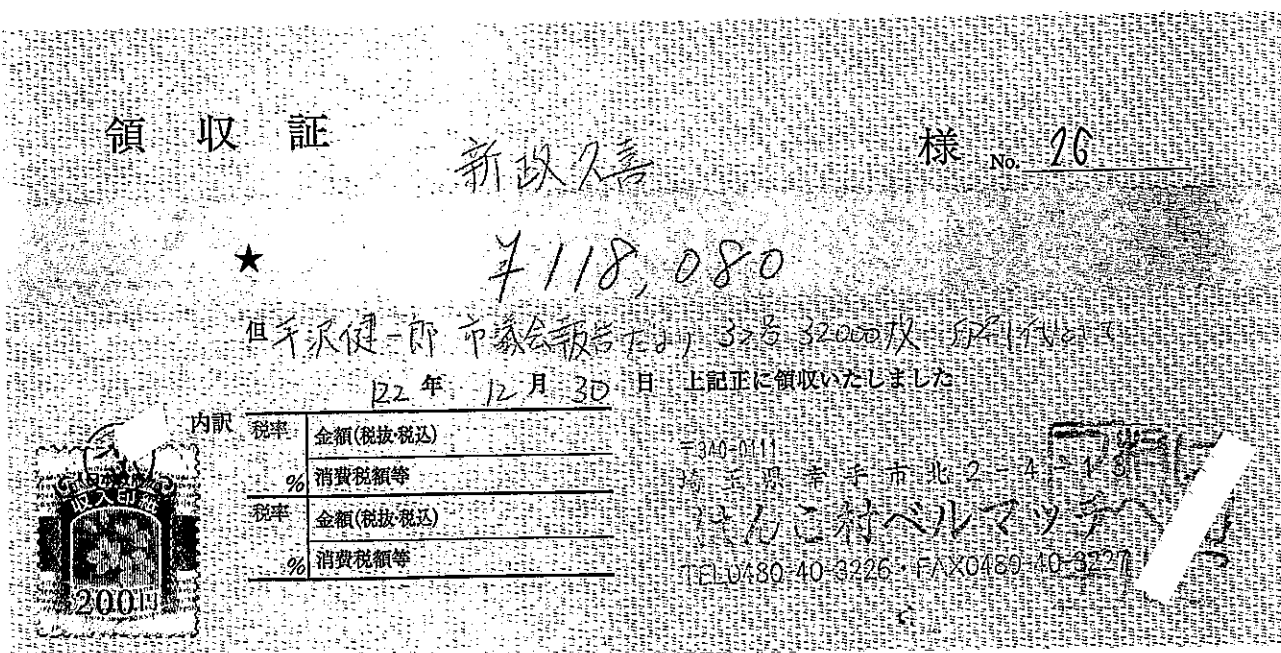 領 収 証
新政久喜 様 No. 26
★ ¥118,080
但 平沢健一郎 市議会報告だより 32号 32000枚 印刷代として
'22年 12月 30日 上記正に領収いたしました
内訳
税率 金額(税抜・税込)
% 消費税額等
税率 金額(税抜・税込)
% 消費税額等
収入印紙
200円
〒340-0111
埼玉県幸手市北2-4-18
はんこ村ベルマッチ
TEL0480-40-3226・FAX0480-40-3227